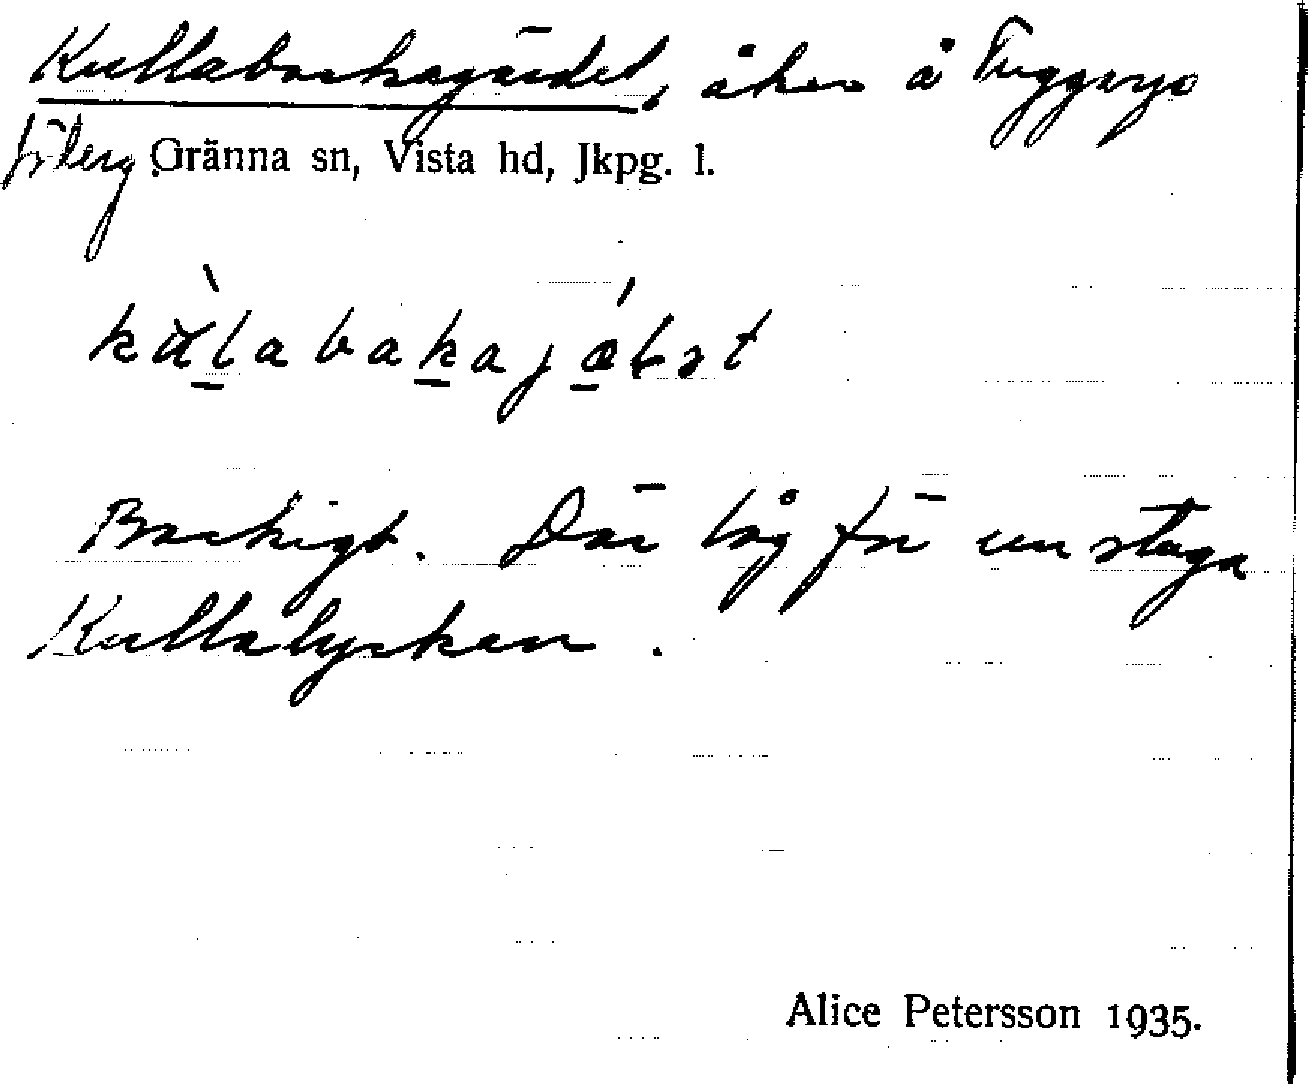 Kullabackagärdet, åker å
Gränna sn, Vista hd, Jkpg. l.
Backigt. Där låg för en stuga
Kullalyckan.
Alice Petersson 1935.